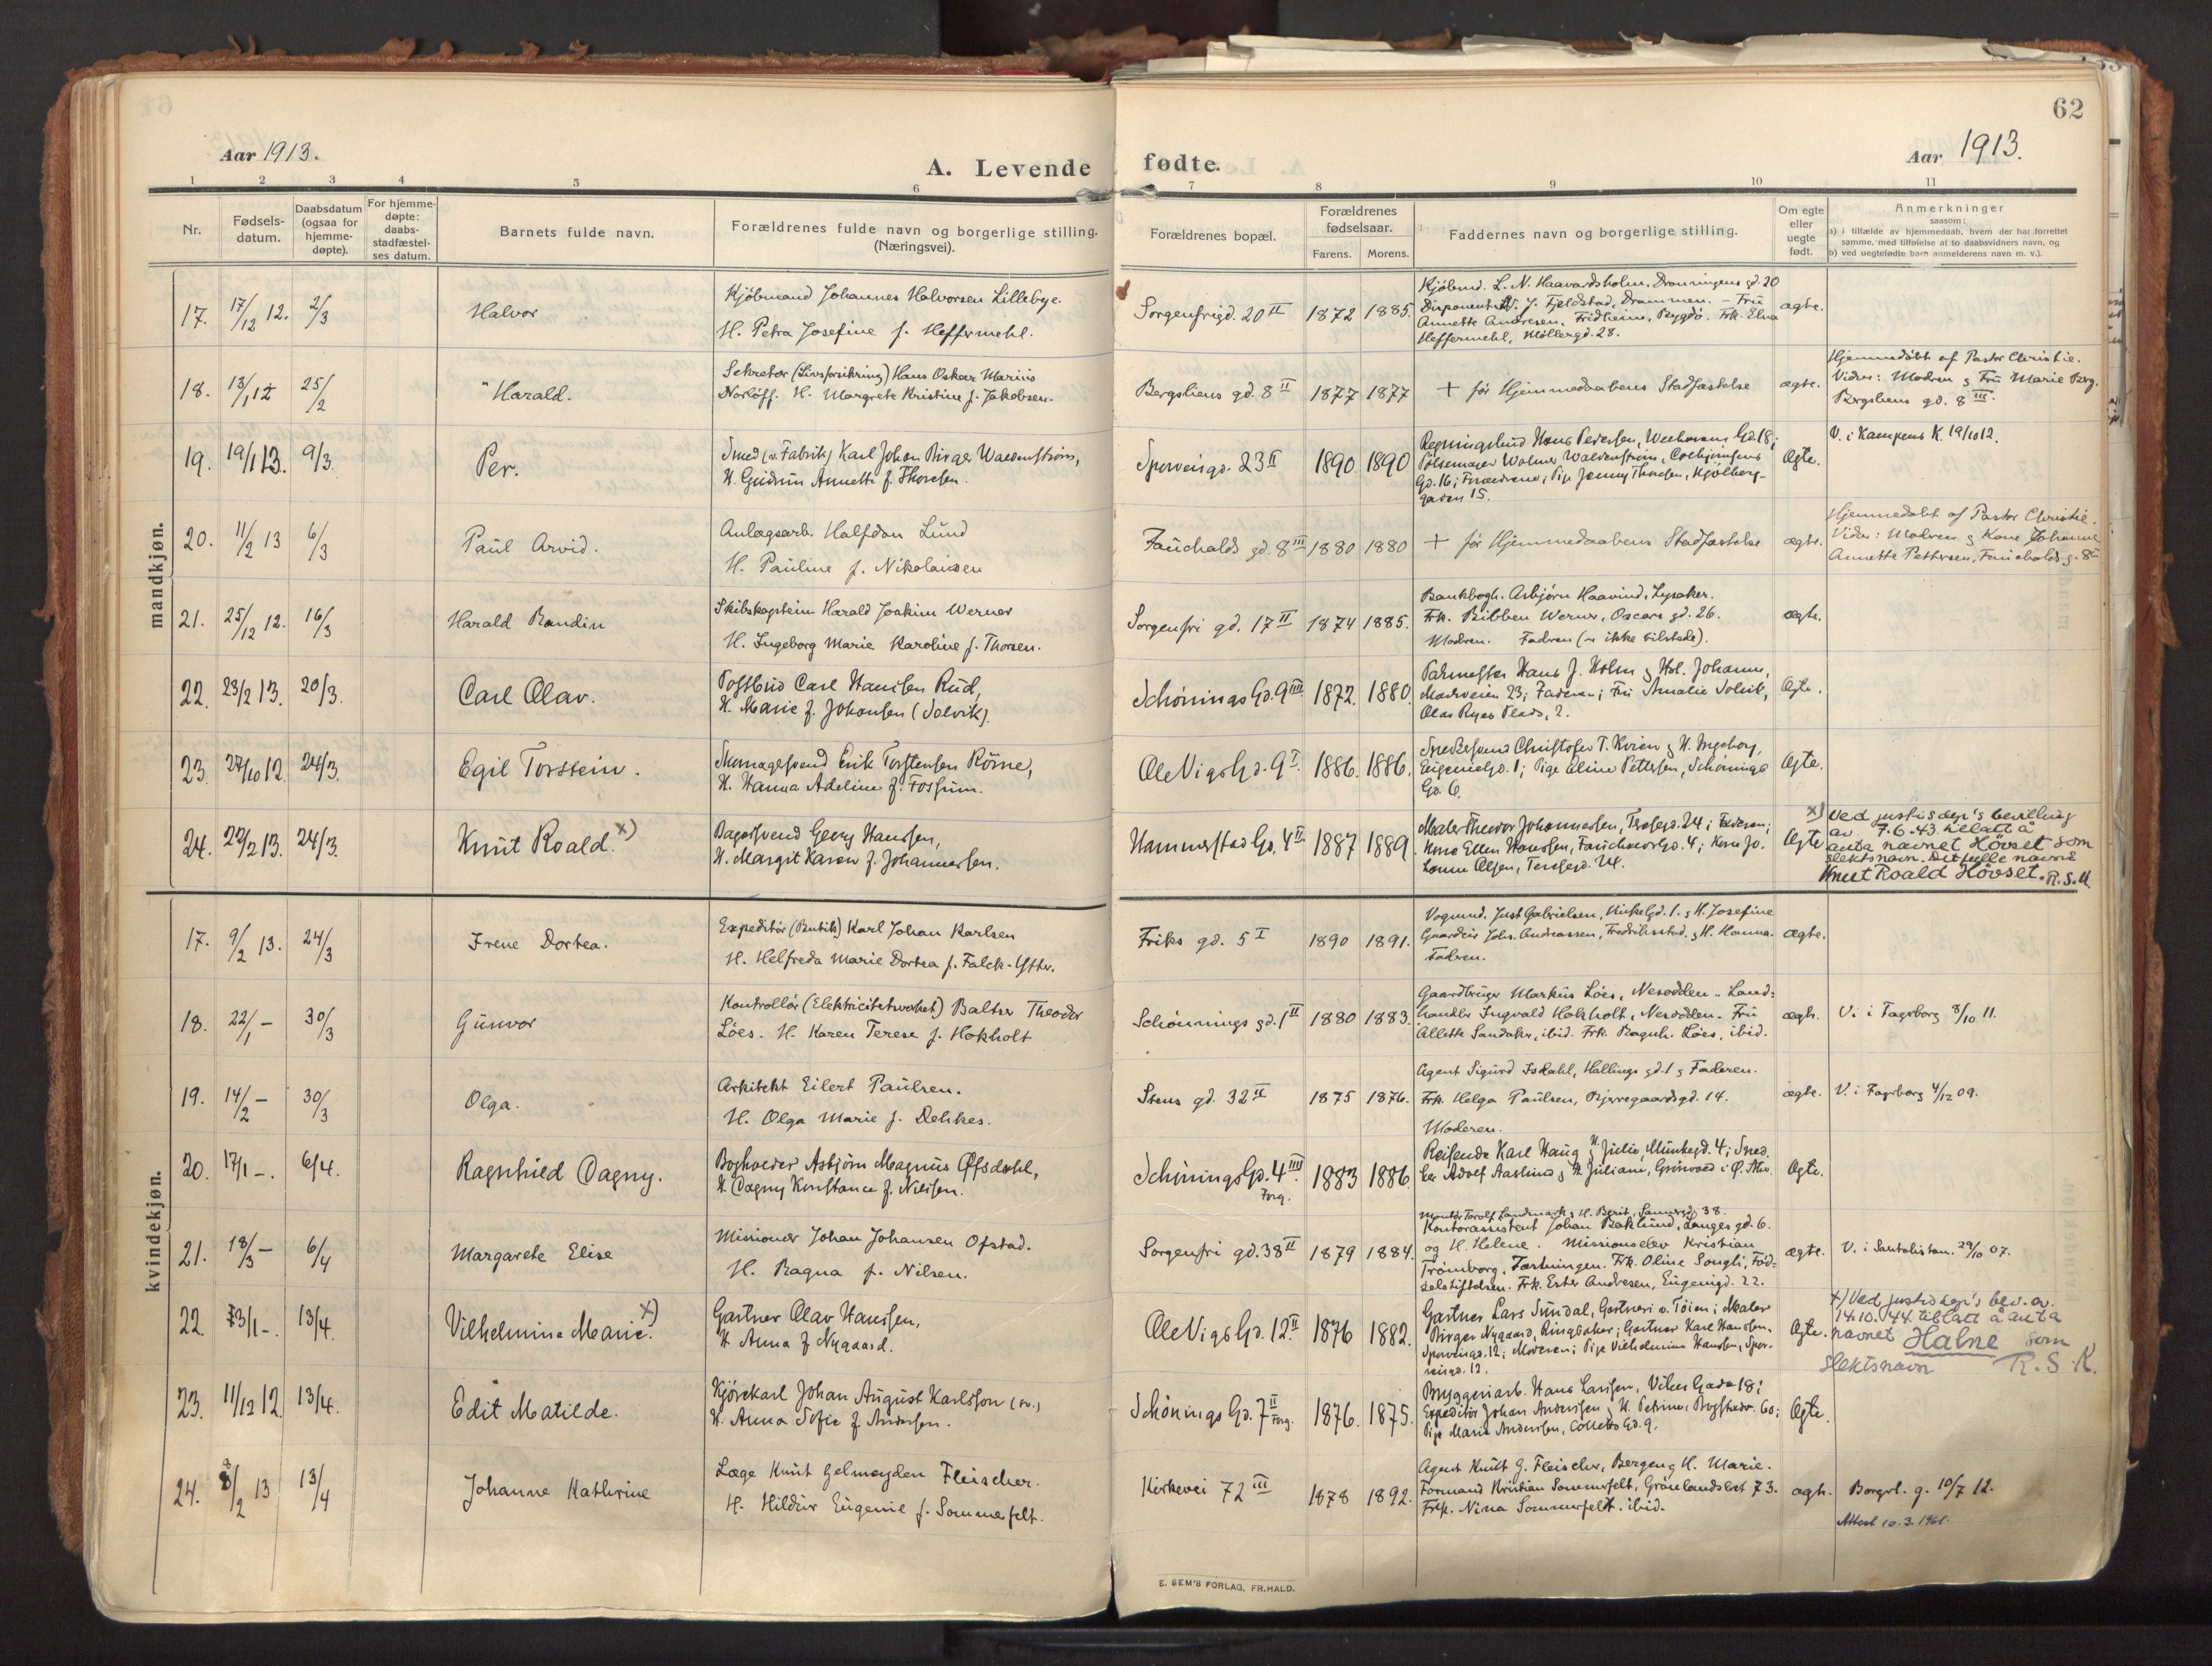 62
Aar 1913.
A. Levende fødte.
Aar 1913.
1 2 3 4 5 6 7 8 9 10 11
Nr.
Fødsels-
datum.
Daabsdatum
(ogsaa for
hjemme-
døpte).
For hjemme-
døpte:
daabs-
stadfæstel-
ses datum.
Barnets fulde navn.
Forældrenes fulde navn og borgerlige stilling.
(Næringsvei).
Forældrenes bopæl.
Forældrenes
fødselsaar.
Farens. Morens.
Faddernes navn og borgerlige stilling.
Om egte
eller
uegte
født.
Anmerkninger
saasom:
a) i tilfælde av hjemmedaab, hvem der har forrettet
samme, med tilføielse af to daabsvidners navn, og
b) ved uegtefødte barn anmelderens navn m. v.).
mandkjøn.
17. 17/12 12. 2/3 Halvor
Kjöbmand Johannes Halvorsen Lillebye.
H. Petra Josefine f. Heffermehl.
Sorgenfrigd. 20 II 1872 1885.
Kjöbmd. L. N. Haavardsholm, Dronningens gd. 20
J. Fjeldstad, Drammen. – Frü
Annette Andresen, Fridheim, Bygdö. Frk. Elna
Heffermehl, Möllergd. 28.
ægte.
18. 13/1 12 25/2 Harald.
Sekretær (Livsforsikring) Hans Oskar Marius
Norløff. H. Margrete Kristine f. Jakobsen.
Bergsliens gd. 8 II 1877 1877
+ før Hjemmedaabens Stadfæstelse
ægte.
Hjemmedöbt af Pastor Christie.
Vidner: Modren & Frü Marie Berg.
Bergsliens gd. 8 III.
19. 19/1 13. 9/3. Per.
Smed (v. Fabrik) Karl Johan Birger Waldenström,
H. Gudrun Annette f. Thoresen.
Sporveisgd. 23 II 1890. 1890.
Hans Pedersen, Gd. 18;
Pölsemager Walmer Waldenström,
Gd. 16; Forældrene; Pige Jenny Thoresen, Kjölberg-
gaden 15.
Ægte.
V. i Kampens K. 19/10 12.
20. 11/2 13 6/3 Paul Arvid.
Anlægsarb. Halfdan Lund
H. Pauline f. Nikolaisen
Fauchalds gd. 8 III 1880 1880
+ før Hjemmedaabens Stadfæstelse
ægte.
Hjemmedöbt af Pastor Christie.
Vidner: Modren & Kone Johanne
Annette Pettersen, Fauchalds g. 8
21. 25/12 12. 16/3 Harald Randin
Skibskaptein Harald Joakim Werner
H. Ingeborg Marie Karoline f. Thorsen.
Sorgenfri gd. 17 II 1874 1885.
Bankbogh. Asbjørn Haavind, Lysaker.
Frk. Bibben Werner, Oscars gd. 26.
Modren. Fadren (v. ikke tilstede).
ægte.
22. 23/2 13. 20/3. Carl Olav.
Postbud Carl Hansen Rud,
H. Marie f. Johansen (Solvik).
Schönings Gd. 9 III 1872. 1880.
Hans J. Holm & H. Johanne,
23; Faderen; Frü Amalie Solvik,
Olaf Ryes Plads, 2.
Ægte.
23. 27/10 12. 24/3. Egil Torstein.
Skomagersvend Erik Torstensen Röine,
H. Hanna Adeline f. Fossum.
Ole Vigs Gd. 9 I. 1886. 1886.
Snedkersvend Christofer T. Kvien & H. Ingeborg,
Eugenie Gd. 1; Pige Eline Pettersen, Schönings
Gd. 6.
Ægte.
24. 22/2 13. 24/3. Knut Roald. x)
Bagersvend Georg Hanssen,
H. Margit Karen f. Johannessen.
Hammerstad Gd. 4 II 1887 1889.
Maler Theodor Johannessen, Teresegd. 24; Faderen;
Kone Ellen Hanssen, Gd. 4; Kone Jo-
hanne Olsen, Teresegd. 24.
Ægte
x) Ved justisdep's bevilling
av 7.6.43 tillatt å
anta navnet Hövset som
slektsnavn. Det fulle navn:
Knut Roald Hövset. R.S.K.
kvindekjøn.
17. 9/2 13. 24/3 Irene Dortea.
Expeditör (Butik) Karl Johan Karlsen
H. Helfreda Marie Dortea f. Falck-Ytter.
Friks gd. 5 I 1890 1891.
Vognmd. Just Gabrielsen, gd. 1. & H. Josefine
Gaardeier Johs. Andreassen, Fredriksstad. & H. Hanna.
Fadren.
ægte.
18. 22/1 – 30/3 Gunvor
Kontrollör (Elektricitetsverket) Balther Theodor
Löes. H. Karen Terese f. Hokholt
Schönnings gd. 1 II 1880 1883.
Gaardbruger Markus Löes, Nesodden – Land-
handler Ingvald Hokholt, Nesodden – Frü
Allette Sandaker, ibid. Frk. Ragnh. Löes, ibid.
ægte.
V. i Fagerborg 8/10 11.
19. 14/2 – 30/3 Olga.
Arkitekt Eilert Paulsen.
H. Olga Marie f. Dehkes.
Stens gd. 32 II 1875 1876.
Agent Sigurd Isdahl, Hallings gd. 1 & Faderen.
Frk. Helga Paulsen, Bjerregaardsgd. 14.
Moderen.
ægte.
V. i Fagerborg 4/12 09.
20. 17/1 –. 6/4. Ragnhild Dagny.
Bogholder Asbjörn Magnus Öfsdahl,
H. Dagny Konstance f. Nielsen.
Schönings Gd. 4 III. Forg. 1883 1886.
Reisende Karl Haug & H. Julie, Munkegd. 4; Sned-
ker Adolf Aaslund & H. Juliane,
Ægte.
21. 18/3 – 6/4 Margarete Elise
Missionær Johan Johansen Ofstad.
H. Ragna f. Nilsen.
Sorgenfri gd. 38 II 1879 1884.
Montör Torolf Landmark & H. Berit, 38.
Kontorassistent Johan Baklund, Langes gd. 6.
og H. Helene. Missionselev Kristian
Trömborg, Frk. Oline Songli, Föd-
selsstiftelsen. Frk. Ester Andresen, Eugenigd. 22.
ægte.
V. i Santalistan. 29/10 07.
22. 23/1 –. 13/4. Vilhelmine Marie. x)
Gartner Olav Hanssen,
H. Anna f. Nygaard.
Ole Vigs Gd. 12 II 1876 1882.
Gartner Lars Sundal, Gartneri v. Töien; Maler
Birger Nygaard, Ringsaker; Gartner Karl Hanssen,
Sporveisgd. 12; Moderen; Pige Vilhelmine Hanssen, Spor-
veisgd. 12.
Ægte.
x) Ved justisdep's bev. av
14.10.44 tillatt å anta
navnet Halne som
slektsnavn R.S.K.
23. 11/12 12. 13/4. Edit Matilde.
Kjörekarl Johan August Karlsson (sv.)
H. Anna Sofie f. Andersen.
Schönings Gd. 7 II Forg. 1876. 1875.
Bryggeriarb. Hans Larssen, Gade 18;
Expeditör Johan Anderssen & H. Petrine, 60;
Pige Marie Anderssen, Colletts Gd. 9.
Ægte.
24. 8/2 13 13/4 Johanne Kathrine
Læge Knut Gelmeyden Fleischer.
H. Hildur Eugenie f. Sommerfelt.
Kirkevei 72 III 1878 1892.
Agent Knut G. Fleischer, Bergen & H. Marie.
Formand Kristian Sommerfelt, Grönlandsleret 73.
Frk. Nina Sommerfelt. ibid.
ægte.
Borgerl. g. 10/7 12.
Attest 10.3.1961.
E. SEM'S FORLAG, FR.HALD.